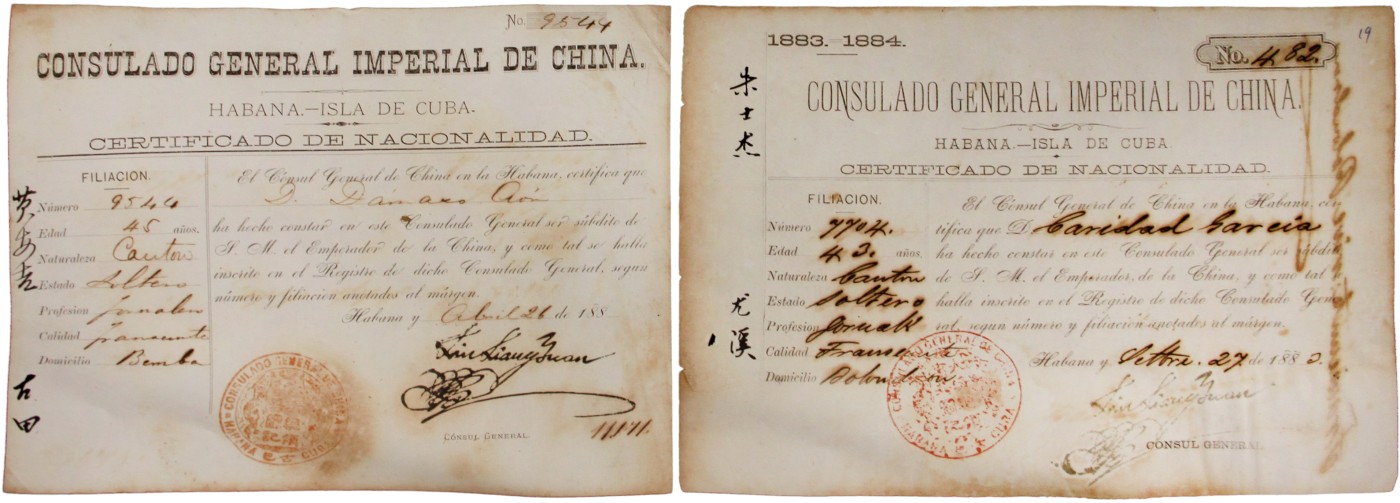 No. 9544
CONSULADO GENERAL IMPERIAL DE CHINA.
HABANA.—ISLA DE CUBA.
CERTIFICADO DE NACIONALIDAD.
FILIACION.
Número 9544
Edad 45 años.
Naturaleza Canton
Estado Soltero
Profesion
Calidad Transeunte
Domicilio Bemba
El Cónsul General de China en la Habana, certifica que
D. Damaso Aón
ha hecho constar en este Consulado General ser súbdito de
S. M. el Emperador de la China, y como tal se halla
inscrito en el Registro de dicho Consulado General, segun
número y filiacion anotados al márgen.
Habana y Abril 26 de 188
Lin Liang Yuan
CÓNSUL GENERAL.
CONSULADO GENERAL
HABANA
CUBA
古田
1883.—1884.
No. 482.
19
CONSULADO GENERAL IMPERIAL DE CHINA.
HABANA.—ISLA DE CUBA.
CERTIFICADO DE NACIONALIDAD.
朱士杰
尤溪
FILIACION.
Número 7704.
Edad 43. años.
Naturaleza Canton
Estado Soltero
Profesion
Calidad Transeunte
Domicilio Colon
El Cónsul General de China en la Habana, cer-
tifica que D. Caridad Garcia
ha hecho constar en este Consulado General ser súbdito
de S. M. el Emperador, de la China, y como tal se
halla inscrito en el Registro de dicho Consulado Gene-
ral, segun número y filiacion anotados al márgen.
Habana y Settre. 27 de 1883.
Lin Liang Yuan
CONSUL GENERAL
CONSULADO GENERAL DE CHINA
HABANA
CUBA